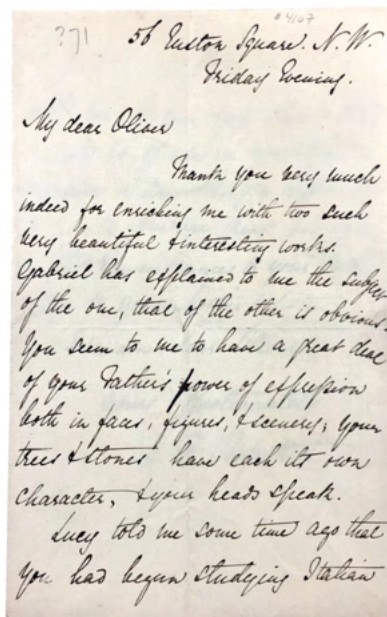 ?71
#4167
56 Euston Square. N. W.
Friday Evening.
My dear Oliver
Thank you very much
indeed for enriching me with two such
very beautiful & interesting works.
Gabriel has explained to me the subject
of the one, that of the other is obvious.
You seem to me to have a great deal
of your Father's power of expression
both in faces, figures, & scenery; your
trees & stones have each its own
character, & your heads speak.
Lucy told me some time ago that
you had begun studying Italian